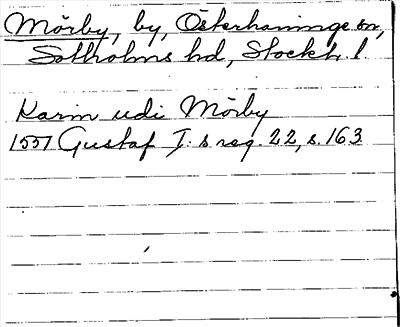 Mörby, by, Österhaninge sn,
Sotholms hd, Stockh. l.
Karin udi Mörby
1557 Gustaf I:s reg. 22, s. 163